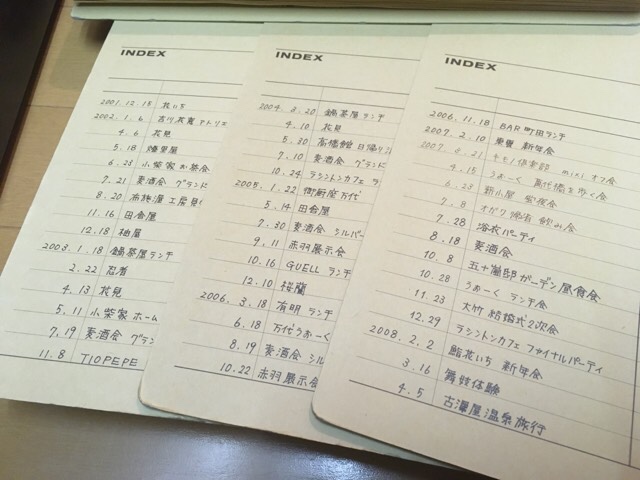 INDEX
2001.12.15 花いち
2002.1.6 古川衣裳 アトリエ
4.6 花見
5.18 燻里屋
6.23 小柴家お茶会
7.21 麦酒会 グランド
8.20 布施 工房見
11.16 田舎屋
12.18 柚屋
2003.1.18 鍋茶屋ランチ
2.22 忍者
4.13 花見
5.11 小柴家 ホーム
7.19 麦酒会 グラン
11.8 TIO PEPE
INDEX
2004.3.20 鍋茶屋 ランチ
4.10 花見
5.30 高橋館 日帰り
7.10 麦酒会 グランド
10.24 ラシントンカフェ ラ
2005.1.22 御厨座 万代
5.14 田舎屋
7.30 麦酒会 シルバー
9.11 赤羽展示会
10.16 GUELL ランチ
12.10 桜蘭
2006.3.18 有明 ランチ
6.18 万代うおーく
8.19 麦酒会 シル
10.22 赤羽展示会
INDEX
2006.11.18 BAR 町田ランチ
2007.2.10 東豐 新年会
2007.2.21 キモノ倶楽部 mixi オフ会
4.15 うおーく 萬代橋を歩く会
6.23 新小屋 蛍夜会
7.8 オガワ婦宿 飲み会
7.28 浴衣パーティ
8.18 麦酒会
10.8 五十嵐邸ガーデン 昼食会
10.28 うおーく ランチ会
11.23 大竹 結婚式2次会
12.29 ラシントンカフェ ファイナルパーティ
2008.2.2 鮨 花いち 新年会
3.16 舞妓体験
4.5 古澤屋温泉旅行